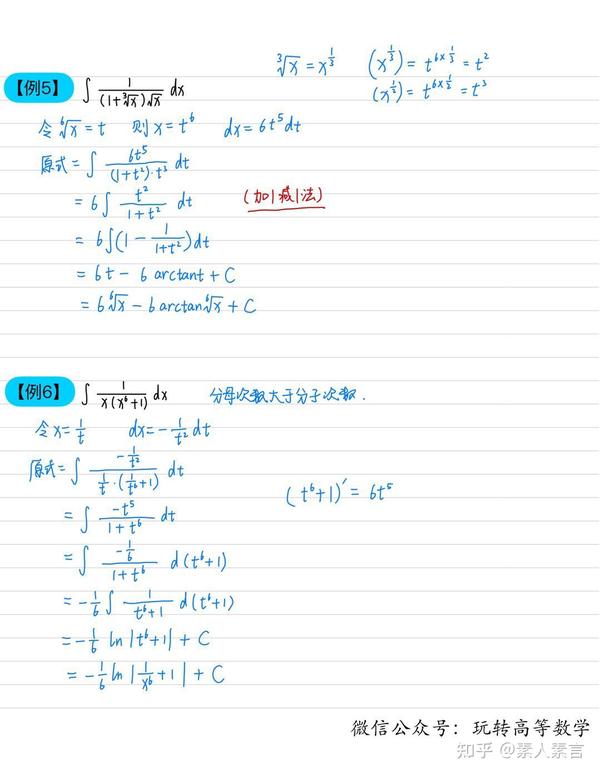 ∛x = x^{1/3}   (x^{1/3}) = t^{6×1/3} = t²
(x^{1/2}) = t^{6×1/2} = t³
【例5】 ∫ 1/((1+∛x)√x) dx
令 ⁶√x = t   则 x = t⁶   dx = 6t⁵dt
原式 = ∫ 6t⁵/((1+t²)·t³) dt
= 6∫ t²/(1+t²) dt   (加1减1法)
= 6∫(1 - 1/(1+t²))dt
= 6t - 6arctant + C
= 6⁶√x - 6arctan⁶√x + C
【例6】 ∫ 1/(x(x⁶+1)) dx   分母次数大于分子次数.
令 x = 1/t   dx = -1/t² dt
原式 = ∫ (-1/t²)/(1/t·(1/t⁶+1)) dt
(t⁶+1)′ = 6t⁵
= ∫ -t⁵/(1+t⁶) dt
= ∫ (-1/6)/(1+t⁶) d(t⁶+1)
= -1/6 ∫ 1/(t⁶+1) d(t⁶+1)
= -1/6 ln|t⁶+1| + C
= -1/6 ln|1/x⁶+1| + C
微信公众号：玩转高等数学
知乎 @素人素言